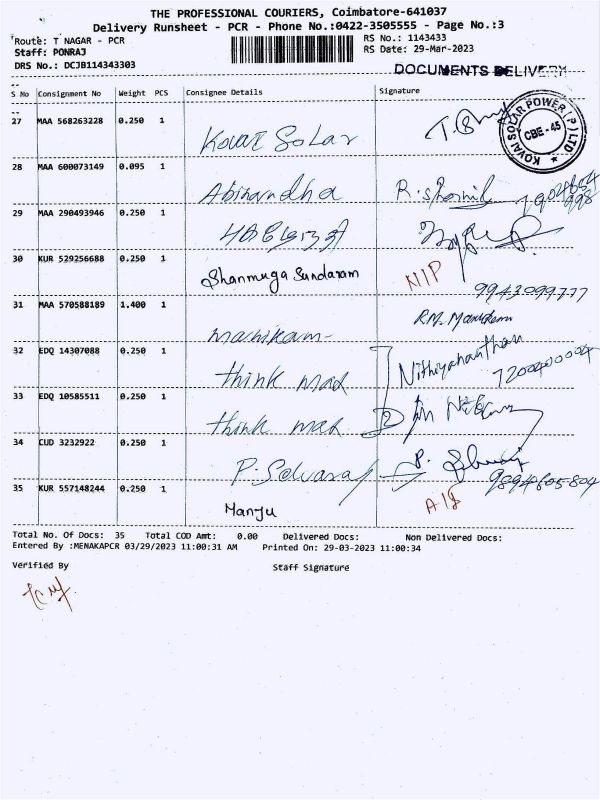 THE PROFESSIONAL COURIERS, Coimbatore-641037
Delivery Runsheet - PCR - Phone No.:0422-3505555 - Page No.:3
Route: T NAGAR - PCR
RS No.: 1143433
Staff: PONRAJ
RS Date: 29-Mar-2023
DRS No.: DCJB114343303
DOCUMENTS DELIVERY
S No Consignment No Weight PCS Consignee Details Signature
27 MAA 568263228 0.250 1 Kovai Solar
KOVAI SOLAR POWER (P) LTD CBE-45
28 MAA 600073149 0.095 1 Abinandha
29 MAA 290493946 0.250 1
30 KUR 529256688 0.250 1 Shanmuga Sundaram NIP
9943099777
31 MAA 570588189 1.400 1 manikam
32 EDQ 14307088 0.250 1 think mad Nithiyananthan
7200400004
33 EDQ 10585511 0.250 1 think mad
34 CUD 3232922 0.250 1 P. Selvaraj P.
9894605804
35 KUR 557148244 0.250 1 Manju
Total No. Of Docs: 35 Total COD Amt: 0.00 Delivered Docs: Non Delivered Docs:
Entered By :MENAKAPCR 03/29/2023 11:00:31 AM Printed On: 29-03-2023 11:00:34
Verified By Staff Signature